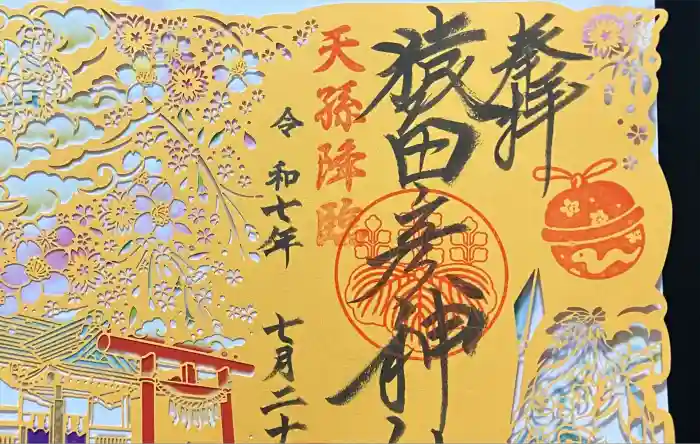 奉拝
猿田彦神
天孫降臨
令和七年
七月二十